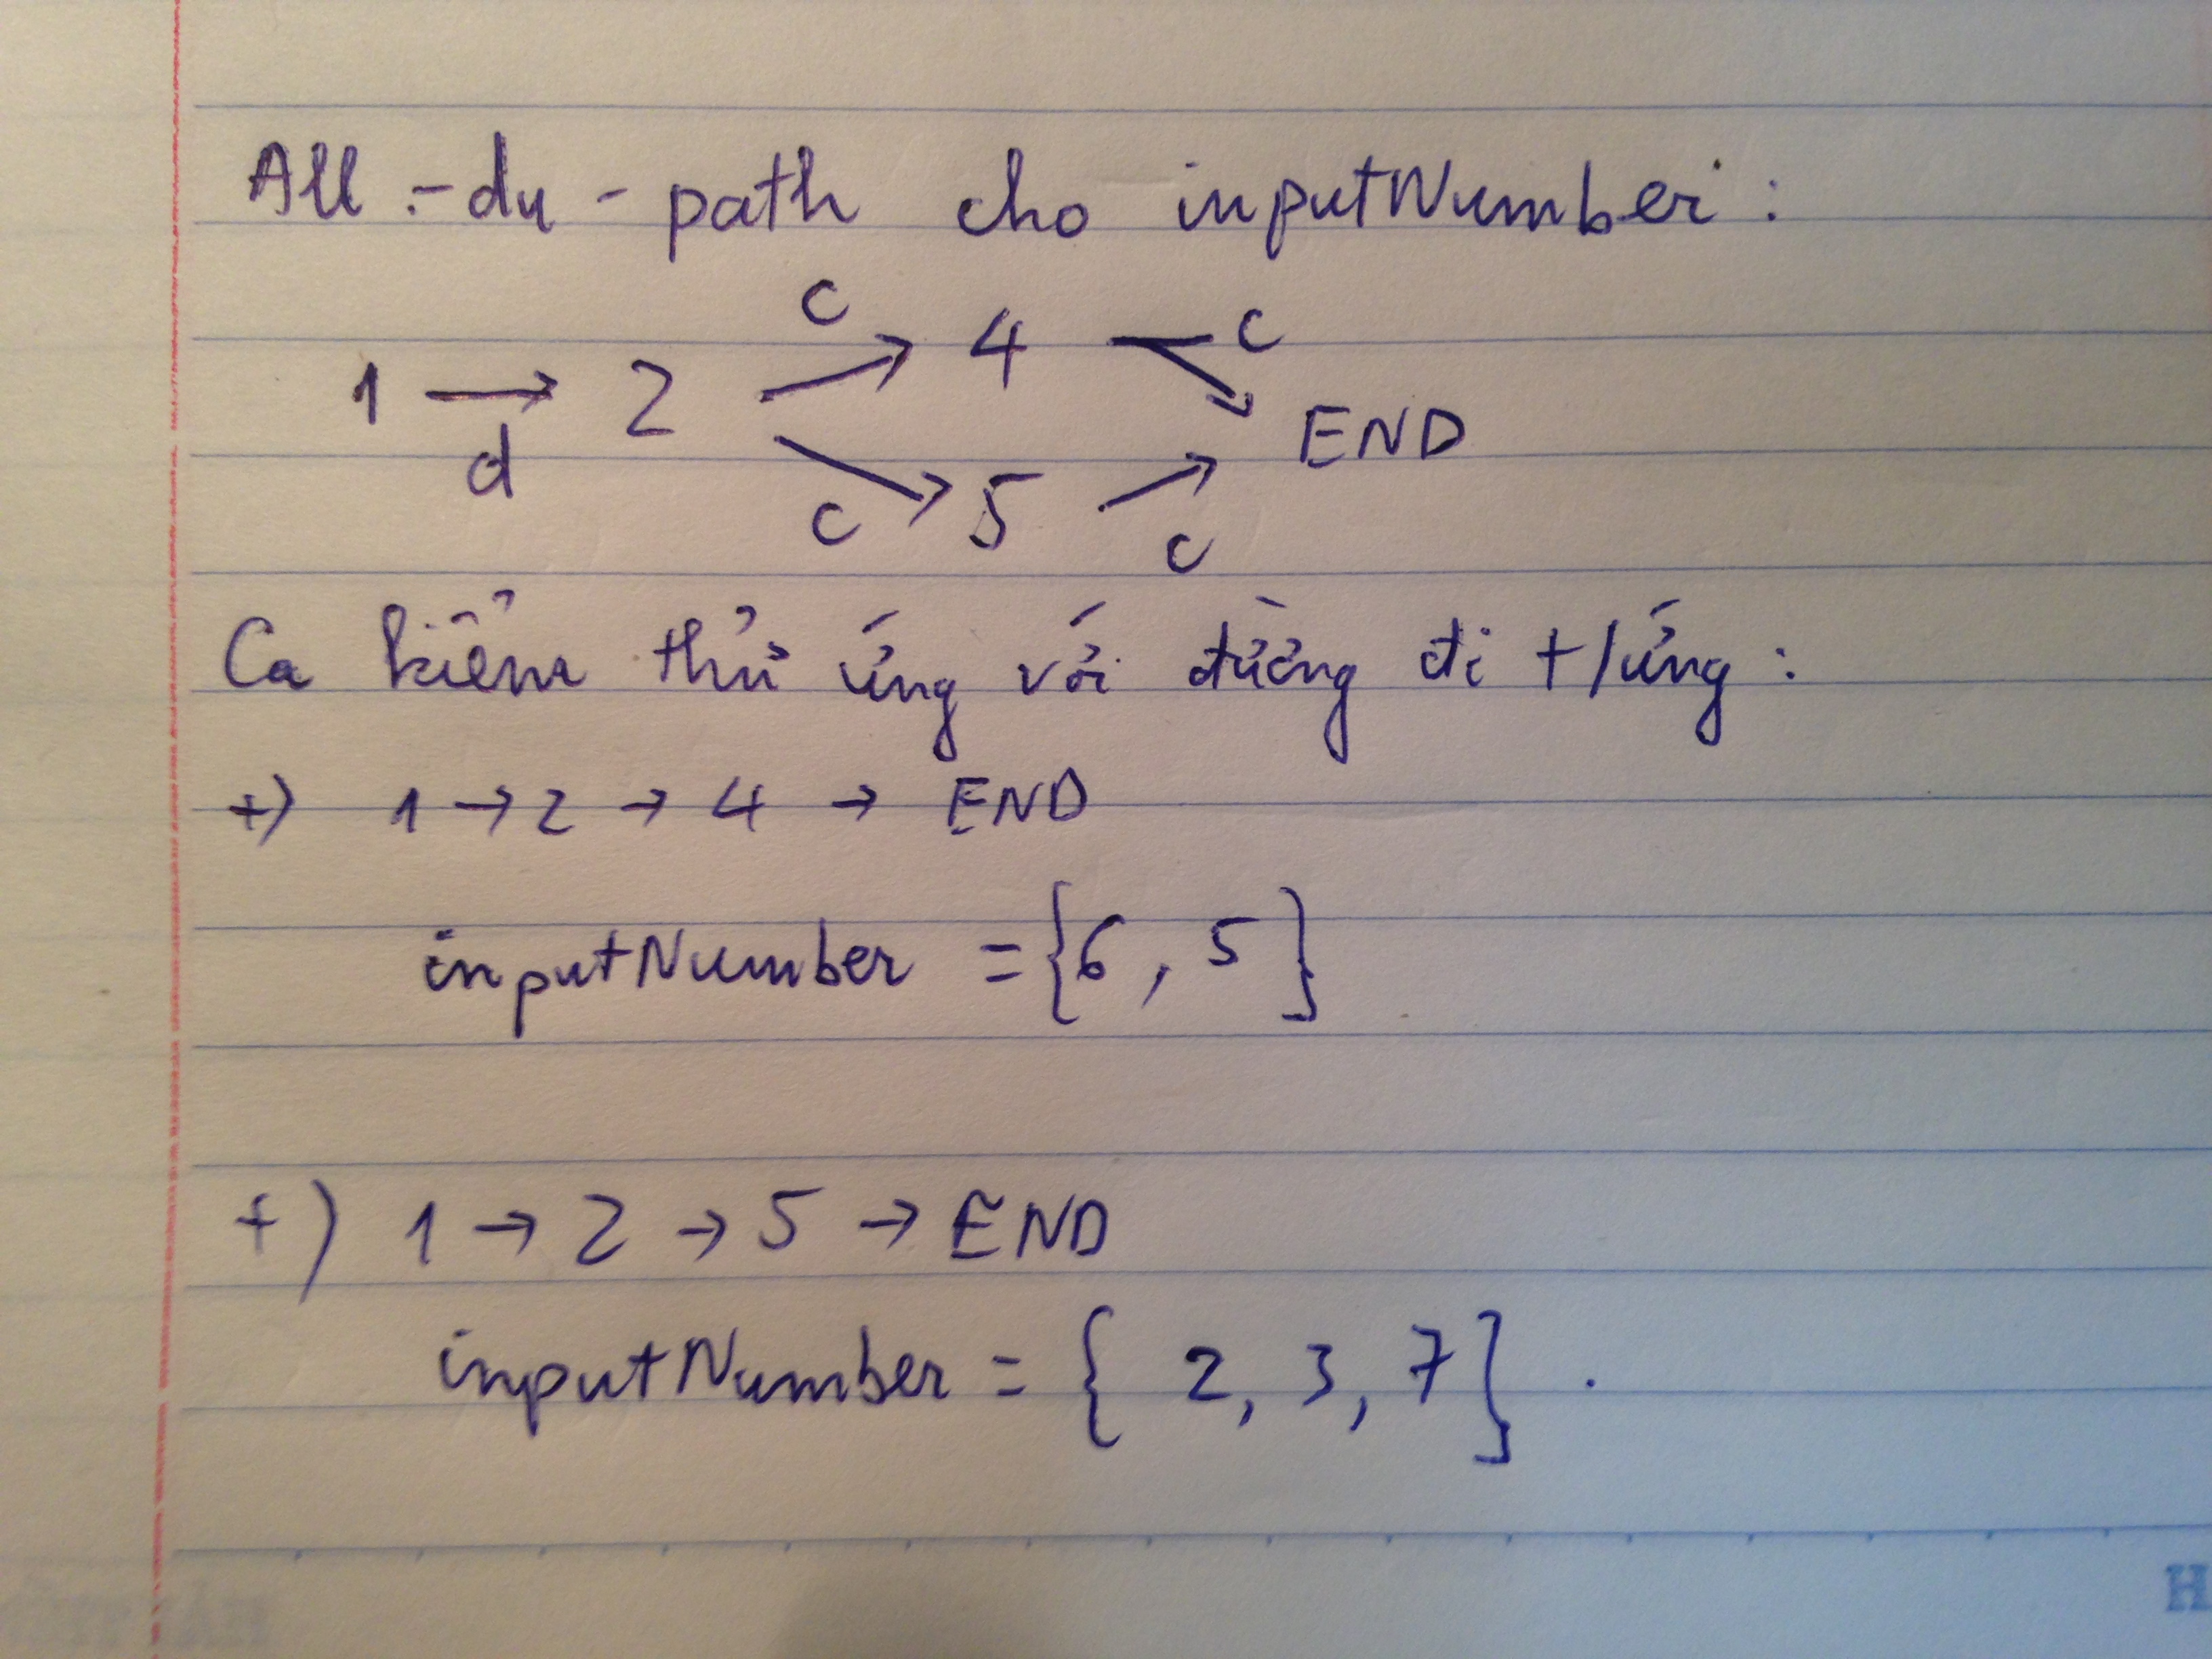 All - du - path cho inputNumber :
c
1 → 2 → 4 → c
d
END
c → 5 → c
Ca kiểm thử ứng với đường đi t/ứng :
+) 1 → 2 → 4 → END
inputNumber = {6, 5}
+) 1 → 2 → 5 → END
inputNumber = { 2, 3, 7} .
H